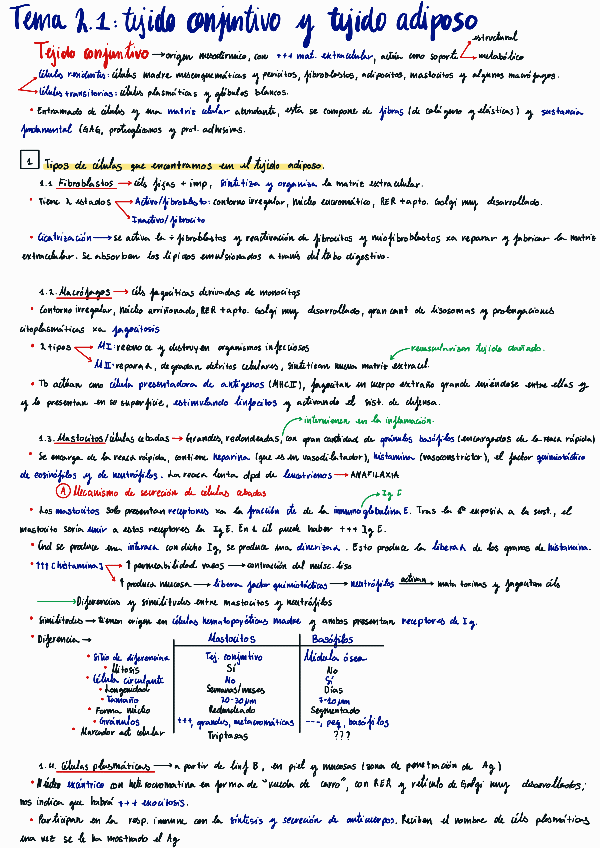 Tema 2.1: tejido conjuntivo y tejido adiposo
Tejido conjuntivo → origen mesodérmico, con +++ mat. extracelular, actúa como soporte estructural metabólico
Células residentes: células madre mesenquemáticas y pericitos, fibroblastos, adipocitos, mastocitos y algunos macrófagos.
Células transitorias: células plasmáticas y glóbulos blancos.
• Entramado de células y una matriz celular abundante, esta se compone de fibras (de colágeno y elásticas) y sustancia
fundamental (GAG, proteoglicanos y prot. adhesivas.
1 Tipos de células que encontramos en el tejido adiposo.
1.1 Fibroblastos → céls fijas + imp, sintetiza y organiza la matriz extracelular.
• Tiene 2 estados → Activo/fibroblasto: contorno irregular, núcleo eucromático, RER + apto. Golgi muy desarrollado.
Inactivo/fibrocito
• Cicatrización → se activa la ÷ fibroblastos y reactivación de fibrocitos y miofibroblastos xa reparar y fabricar la matriz
extracelular. Se absorban los lípidos emulsionados a través del tubo digestivo.
1.2. Macrófagos → céls fagocíticas derivadas de monocitos
• Contorno irregular, núcleo arriñonado, RER + apto. Golgi muy desarrollado, gran cant de lisosomas y prolongaciones
citoplasmáticas xa fagocitosis
• 2 tipos → MI: reconoce y destruyen organismos infecciosos
MII: repara, degradan detritos celulares, sintetizan nueva matriz extracel. revascularizan tejido dañado.
• Tb actúan como célula presentadora de antígenos (MHCII), fagocitan un cuerpo extraño grande uniéndose entre ellas y
y lo presentan en su superficie, estimulando linfocitos y activando el sist. de defensa.
intervienen en la inflamación.
1.3. Mastocitos/células cebadas → Grandes, redondeadas, con gran cantidad de gránulos basófilos (encargados de la reacc rápida)
• Se encarga de la reacc rápida, contiene heparina (que es un vasodilatador), histamina (vasoconstrictor), el factor quimiotáctico
de eosinófilos y de neutrófilos. La reacc lenta dpd de leucotrienos → ANAFILAXIA
A Mecanismo de secreción de células cebadas
Ig E
• Los mastocitos solo presentan receptores xa la fracción cte de la inmunoglobulina E. Tras la 1ª exposic a la sust., el
mastocito se ría unir a estos receptores la Ig E. En 1 cél puede haber +++ Ig E.
• Cnd se produce una interacc con dicho Ig, se produce una dimerizac. Esto produce la liberac de los gramos de histamina.
• ↑↑↑ [histamina] ↑ permeabilidad vasos → contracción del músc. liso
↑ produce mucosa → libera factor quimiotácticos → neutrófilos activan → mata toxinas y fagocitan céls
→ Diferencias y similitudes entre mastocitos y neutrófilos
• Similitudes → tienen origen en células hematopoyéticas madre y ambos presentan receptores de Ig.
• Diferencia → Mastocitos Basófilos
• Sitio de diferenciac Tej. conjuntivo Médula ósea
• Mitosis Sí No
• Célula circulante No Sí
• Longevidad Semanas/meses Días
• Tamaño 20-30 µm 7-10 µm
• Forma núcleo Redondeado Segmentado
• Gránulos +++, grandes, metacromáticas ---, peq, basófilos
• Marcador act celular Triptasas ???
1.4. Células plasmáticas → a partir de linf B, en piel y mucosas (zona de penetración de Ag)
• Núcleo excéntrico con heterocromatina en forma de "rueda de carro", con RER y retículo de Golgi muy desarrollados;
nos indica que habrá +++ exocitosis.
• Participan en la resp. inmune con la síntesis y secreción de anticuerpos. Reciben el nombre de céls plasmáticas
una vez se le ha mostrado el Ag